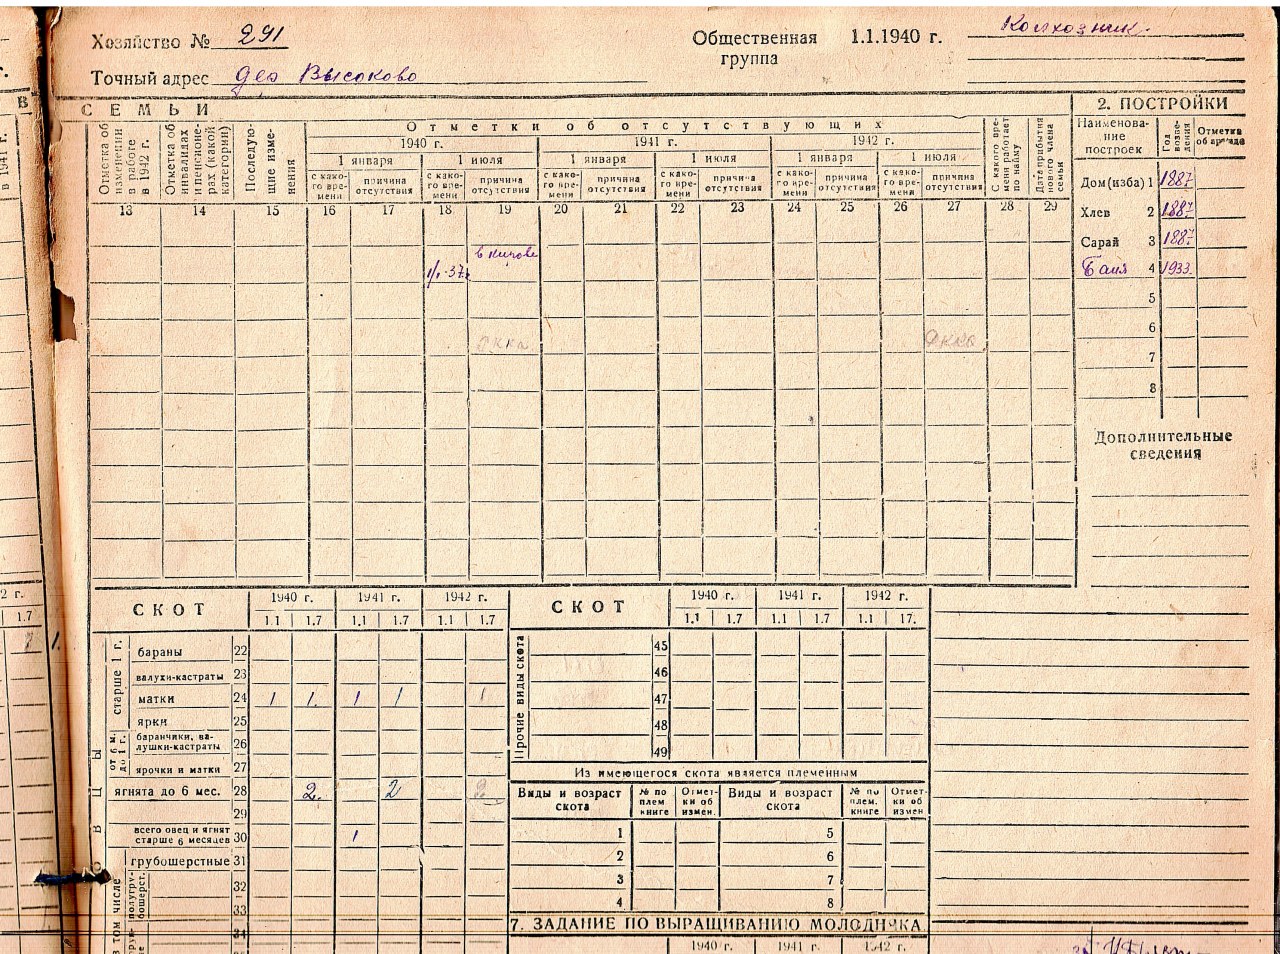 Хозяйство № 291
Общественная группа 1.1.1940 г. Колхозник.
Точный адрес дер Высоково
В
СЕМЬИ
2. ПОСТРОЙКИ
Отметка об изменении в работе в 1942 г.
Отметка об инвалидах и пенсионерах (какой категории)
Последующие изменения
Отметки об отсутствующих
1940 г. 1941 г. 1942 г.
1 января 1 июля 1 января 1 июля 1 января 1 июля
с какого времени причина отсутствия с какого времени причина отсутствия с какого времени причина отсутствия с какого времени причина отсутствия с какого времени причина отсутствия с какого времени причина отсутствия
С какого времени работает по найму
Дата прибытия нового члена семьи
Наименование построек
Год возведения
Отметка об аренде
13 14 15 16 17 18 19 20 21 22 23 24 25 26 27 28 29
Дом (изба) 1 1887
Хлев 2 1887.
Сарай 3 1887.
Баня 4 1933.
5
6
7
8
в Кирове
1/I-37г.
Дополнительные сведения
СКОТ
1940 г. 1941 г. 1942 г.
1.1 1.7 1.1 1.7 1.1 1.7
старше 1 г.
бараны 22
валухи-кастраты 23
матки 24 1 1. 1 1 1
ярки 25
от 6 м. до 1 г.
баранчики, валушки-кастраты 26
ярочки и матки 27
ягнята до 6 мес. 28 2. 2 2
29
всего овец и ягнят старше 6 месяцев 30 1
грубошерстные 31
полугрубошерст.
32
33
34
в том числе
СКОТ
1940 г. 1941 г. 1942 г.
1.1 1.7 1.1 1.7 1.1 17.
Прочие виды скота
45
46
47
48
49
Из имеющегося скота является племенным
Виды и возраст скота № по плем. книге Отметки об измен. Виды и возраст скота № по плем. книге Отметки об измен.
1 5
2 6
3 7
4 8
7. ЗАДАНИЕ ПО ВЫРАЩИВАНИЮ МОЛОДНЯКА
1940 г. 1941 г. 1942 г.